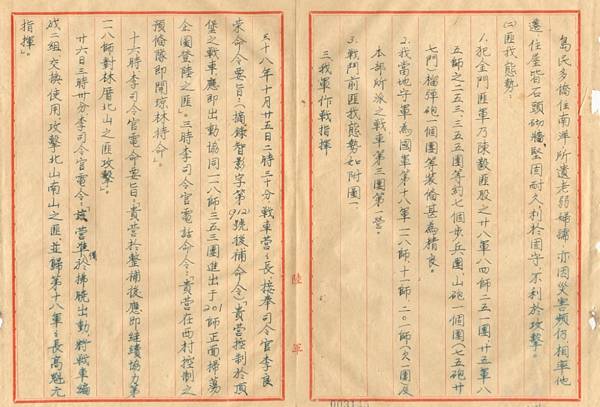 島民多僑住南洋所遺老弱婦孺、亦因災害頻仍相率他
遷、住屋皆石頭砌牆、堅固耐久利於固守、不利於攻擊。
㈡匪我態勢：
1.犯金門匪軍乃陳毅匪股之廿八軍八四師二五一團廿五軍八
五師之二五三、二五五團等約七個步兵團、山砲一個團(七五砲廿
七門)榴彈砲一個團等裝備甚為精良。
2.我當地守軍為國軍第十八軍一一八師、十一師、二〇一師(欠一團)及
本部所派之戰車第三團第一營。
3.戰鬥前匪我態勢如附圖一
三我軍作戰指揮
卅八年十月廿五日二時三十分戰車營營長、接奉司令官李良
榮命令要旨：(摘錄智影字第912號後補命令)「貴營控制於頂
堡之戰車應即出動協同一一八師三五三團進出于201師正面掃蕩
企圖登陸之匪」。三時李司令官電話命令：「貴營在西村控制之
預備隊即開瓊林待命」。
十六時李司令官電命要旨：「貴營於整補後應即繼續協力第
一一八師對林厝北山之匪攻擊」。
廿六日三時卅分李司令官電令：「該營準備於拂曉出動、將戰車編
成二組交換使用攻擊北山南山之匪、並歸第十八軍軍長高魁元
指揮」。
陸軍